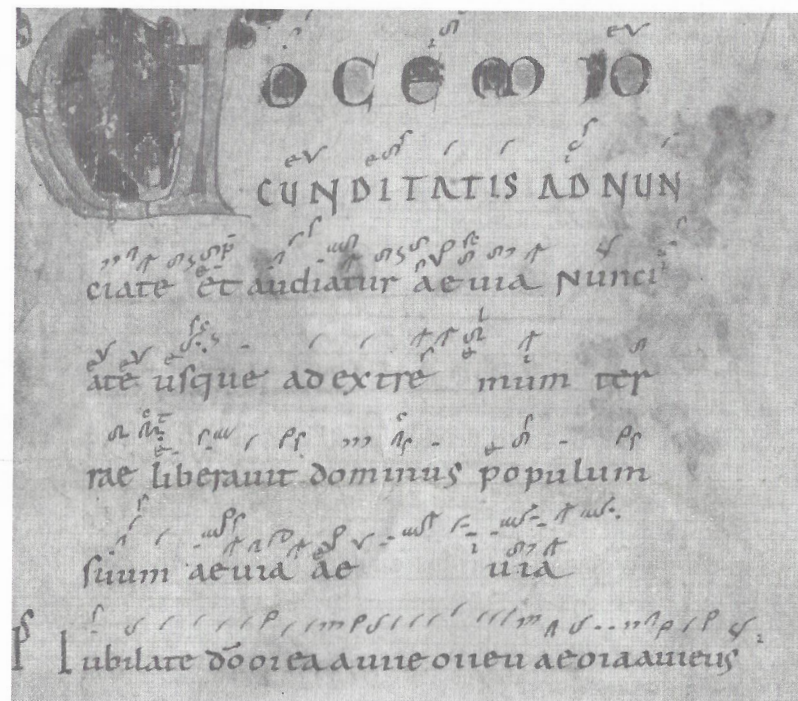 VOCEM IO
CUNDITATIS AD NUN
ciate et audiatur aeuia Nunci
ate usque ad extre mum ter
rae liberauit dominus populum
suum aeuia ae uia
Ps Iubilate dō o i e a a u i i e o i i e u aeoiaauieus